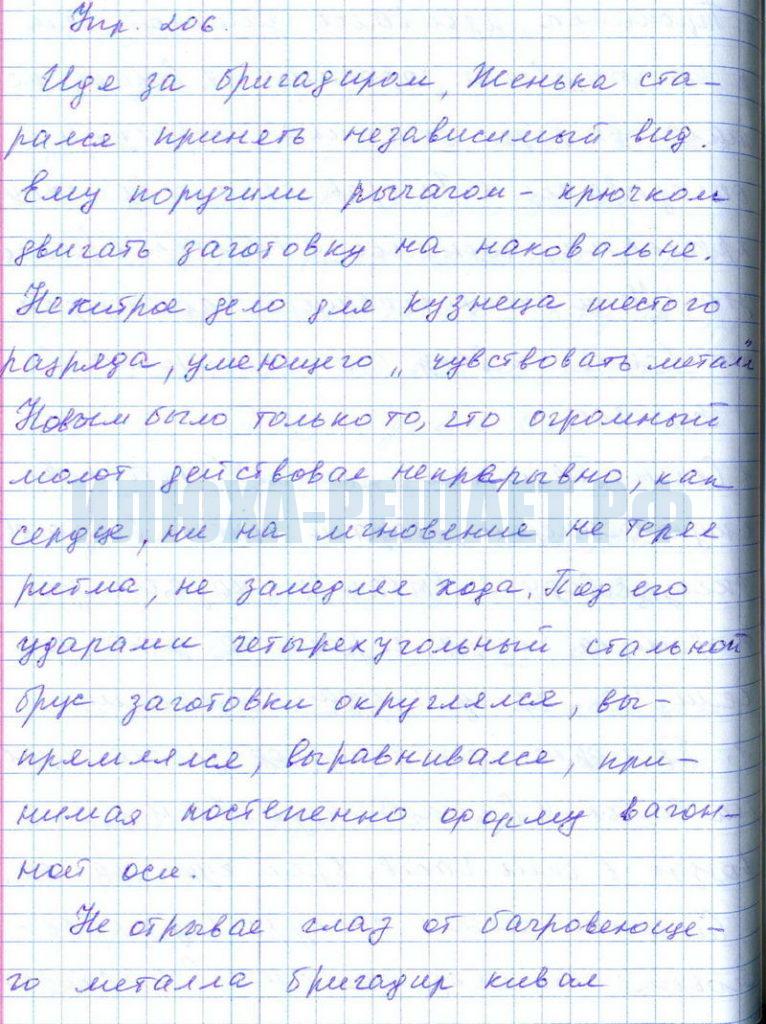 Упр. 206.
Идя за бригадиром, Женька ста-
рался принять независимый вид.
Ему поручили рычагом - крючком
двигать заготовку на наковальне.
Нехитрое дело для кузнеца шестого
разряда, умеющего „чувствовать металл"
Новым было только то, что огромный
молот действовал непрерывно, как
сердце, ни на мгновение не теряя
ритма, не замедляя хода. Под его
ударами четырехугольный стальной
брус заготовки округлялся, вы-
прямлялся, выравнивался, при-
нимая постепенно форму вагон-
ной оси.
Не отрывая глаз от багровеюще-
го металла бригадир кивал
ИЛЮХА-РЕШАЕТ.РФ